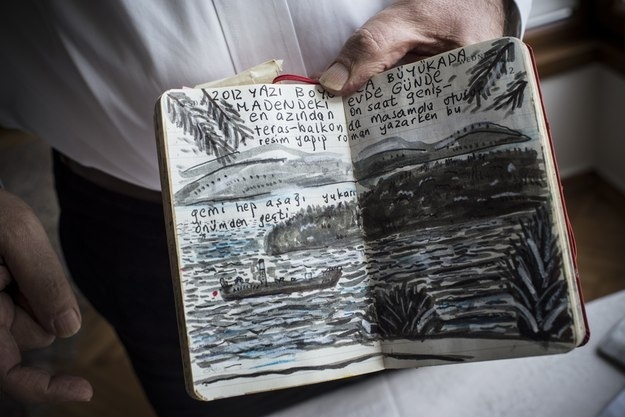 2012 YAZI BOYUNCA BÜYÜKADA
MADENDEKİ EVDE GÜNDE
en azından on saat geniş-
teras-balkonda masamda otu
resim yapıp roman yazarken bu
gemi hep aşağı yukarı
önümden geçti